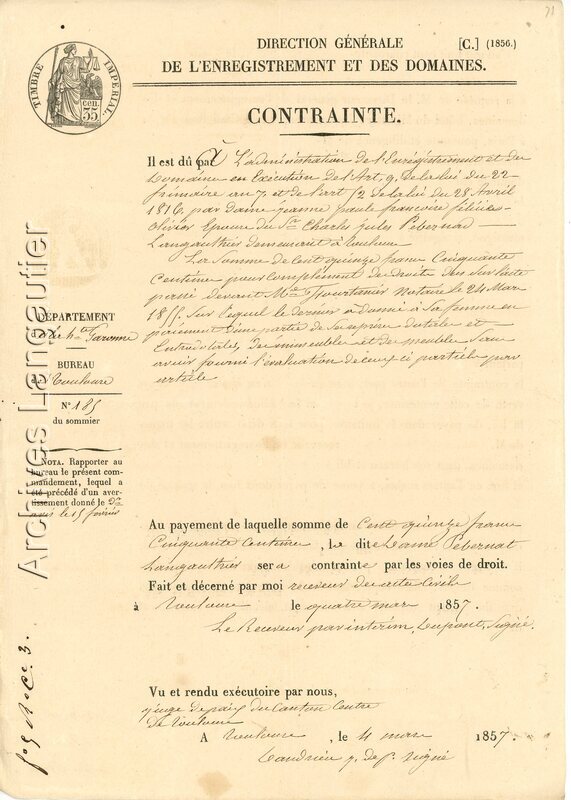 71
TIMBRE IMPERIAL.
35 cen.
DIRECTION GÉNÉRALE [C.] (1856.)
DE L'ENREGISTREMENT ET DES DOMAINES.
CONTRAINTE.
Il est dû par L'administration de l'Enregistrement et des
Domaines en Exécution de l'Art. 9. de la loi du 22
frimaire an 7 et de l'art 52 de la loi du 28 Avril
1816, par dame jeanne paule francoise félicie
olivier Epouse du Sr Charles jules Pebernad
Langauthier demeurant à Toulouse
La Somme de Cent quinze francs Cinquante
Centimes pour complément de Droit dus Sur l'acte
passé devant Me Fourtanier Notaire le 24 Mars
1855. Sur lequel le dernier a donné à Sa femme en
payement d'une partie de Sa reprise dotale et
Extradotale, des immeubles et des meubles Sans
avoir fourni l'évaluation de ceux ci article par
article
DÉPARTEMENT
de la hte Garonne
BUREAU
de Toulouse
N° 185
du sommier
NOTA. Rapporter au
bureau le présent com-
mandement, lequel a
été précédé d'un aver-
tissement donné le
le 15 février
Archives Langautier
Au payement de laquelle somme de Cent quinze francs
Cinquante Centimes, la dite Dame Pebernat
Langauthier sera contrainte par les voies de droit.
Fait et décerné par moi receveur des actes Civils
à Toulouse le quatre mars 1857.
Le Receveur par interim, Dupont, Signé.
Vu et rendu exécutoire par nous,
juge de paix du Canton Centre
de Toulouse
A Toulouse, le 4 mars 1857.
j. de p. signé